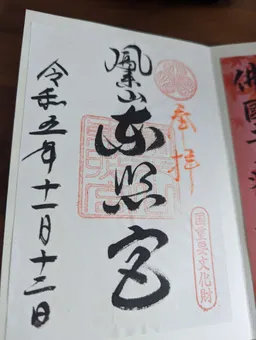 奉拝
鳳来山
東照宮
国重要文化財
令和五年十一月十二日